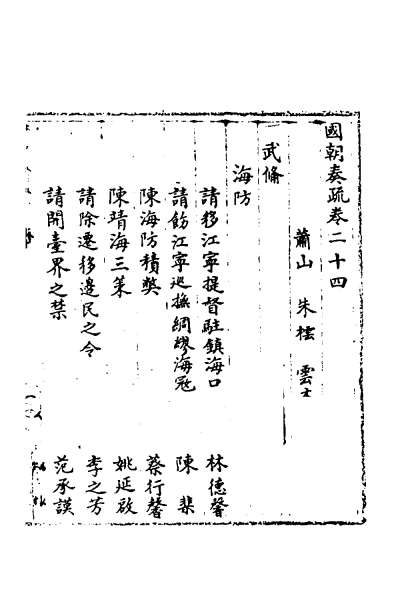 國朝奏疏卷二十四
蕭山 朱橒 雲士
武備
海防
請移江寧提督駐鎮海口 林德馨
請飭江寧巡撫綢繆海冦 陳棐
陳海防積弊 蔡行馨
陳靖海三策 姚延啟
請除遷移邊民之令 李之芳
請開臺界之禁 范承謨